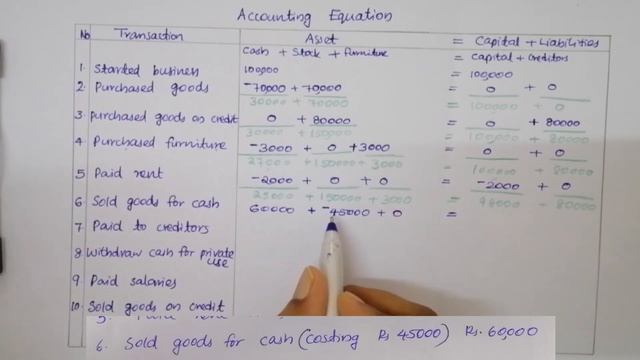 Accounting Equation
No Transaction Asset = Capital + Liabilities
Cash + Stock + Furniture = Capital + Creditors
1. Started business 100,000 = 100,000
2. Purchased goods -70,000 + 70,000 = 0 + 0
30000 + 70000 = 100000 + 0
3. Purchased goods on credit 0 + 80000 = 0 + 80000
30000 + 150000 = 100,000 + 80000
4. Purchased furniture -3000 + 0 + 3000 = 0 + 0
27000 + 150000 + 3000 = 100000 + 80000
5 Paid rent -2000 + 0 + 0 = -2000 + 0
25000 + 150000 + 3000 = 98000 + 80000
6 Sold goods for cash 60000 + -45000 + 0 =
7 Paid to creditors
8 Withdraw cash for private use
9 Paid salaries
10. Sold goods on credit
6. Sold goods for cash (costing Rs 45000) Rs. 60,000